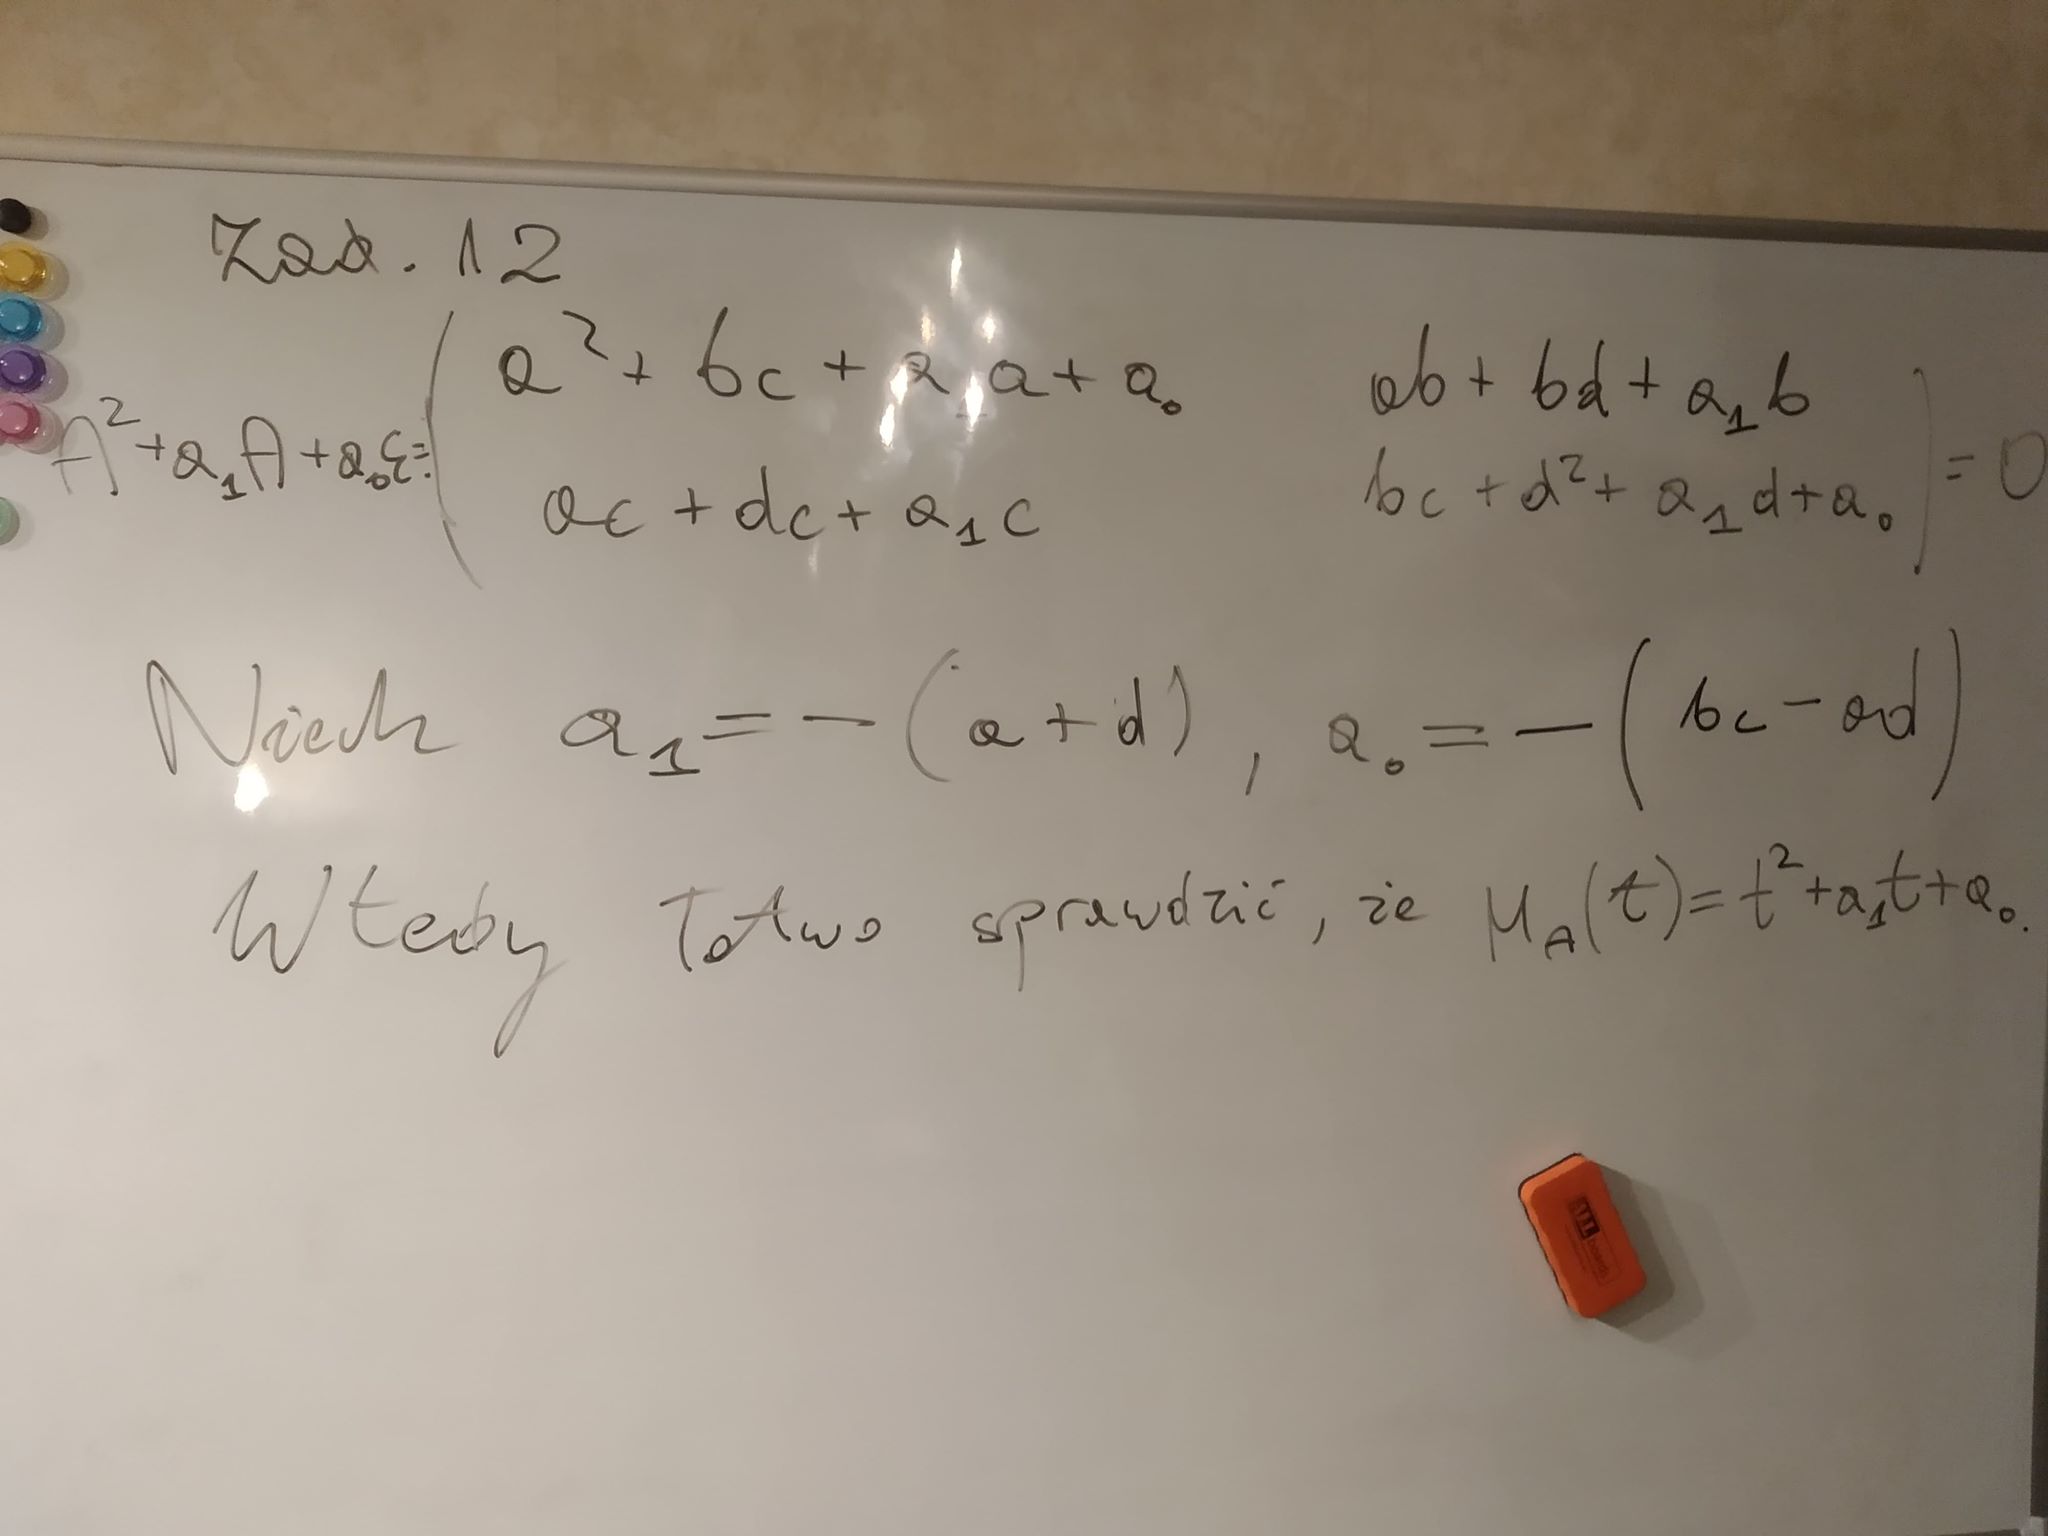 Zad. 12
A²+a₁A+a₀ε= ( a² + bc + a₁a + a₀ ab + bd + a₁b
ac + dc + a₁c bc + d² + a₁d + a₀ ) = 0
Niech a₁ = - (a + d) , a₀ = - (bc - ad)
Wtedy łatwo sprawdzić, że μ_A(t) = t² + a₁t + a₀.